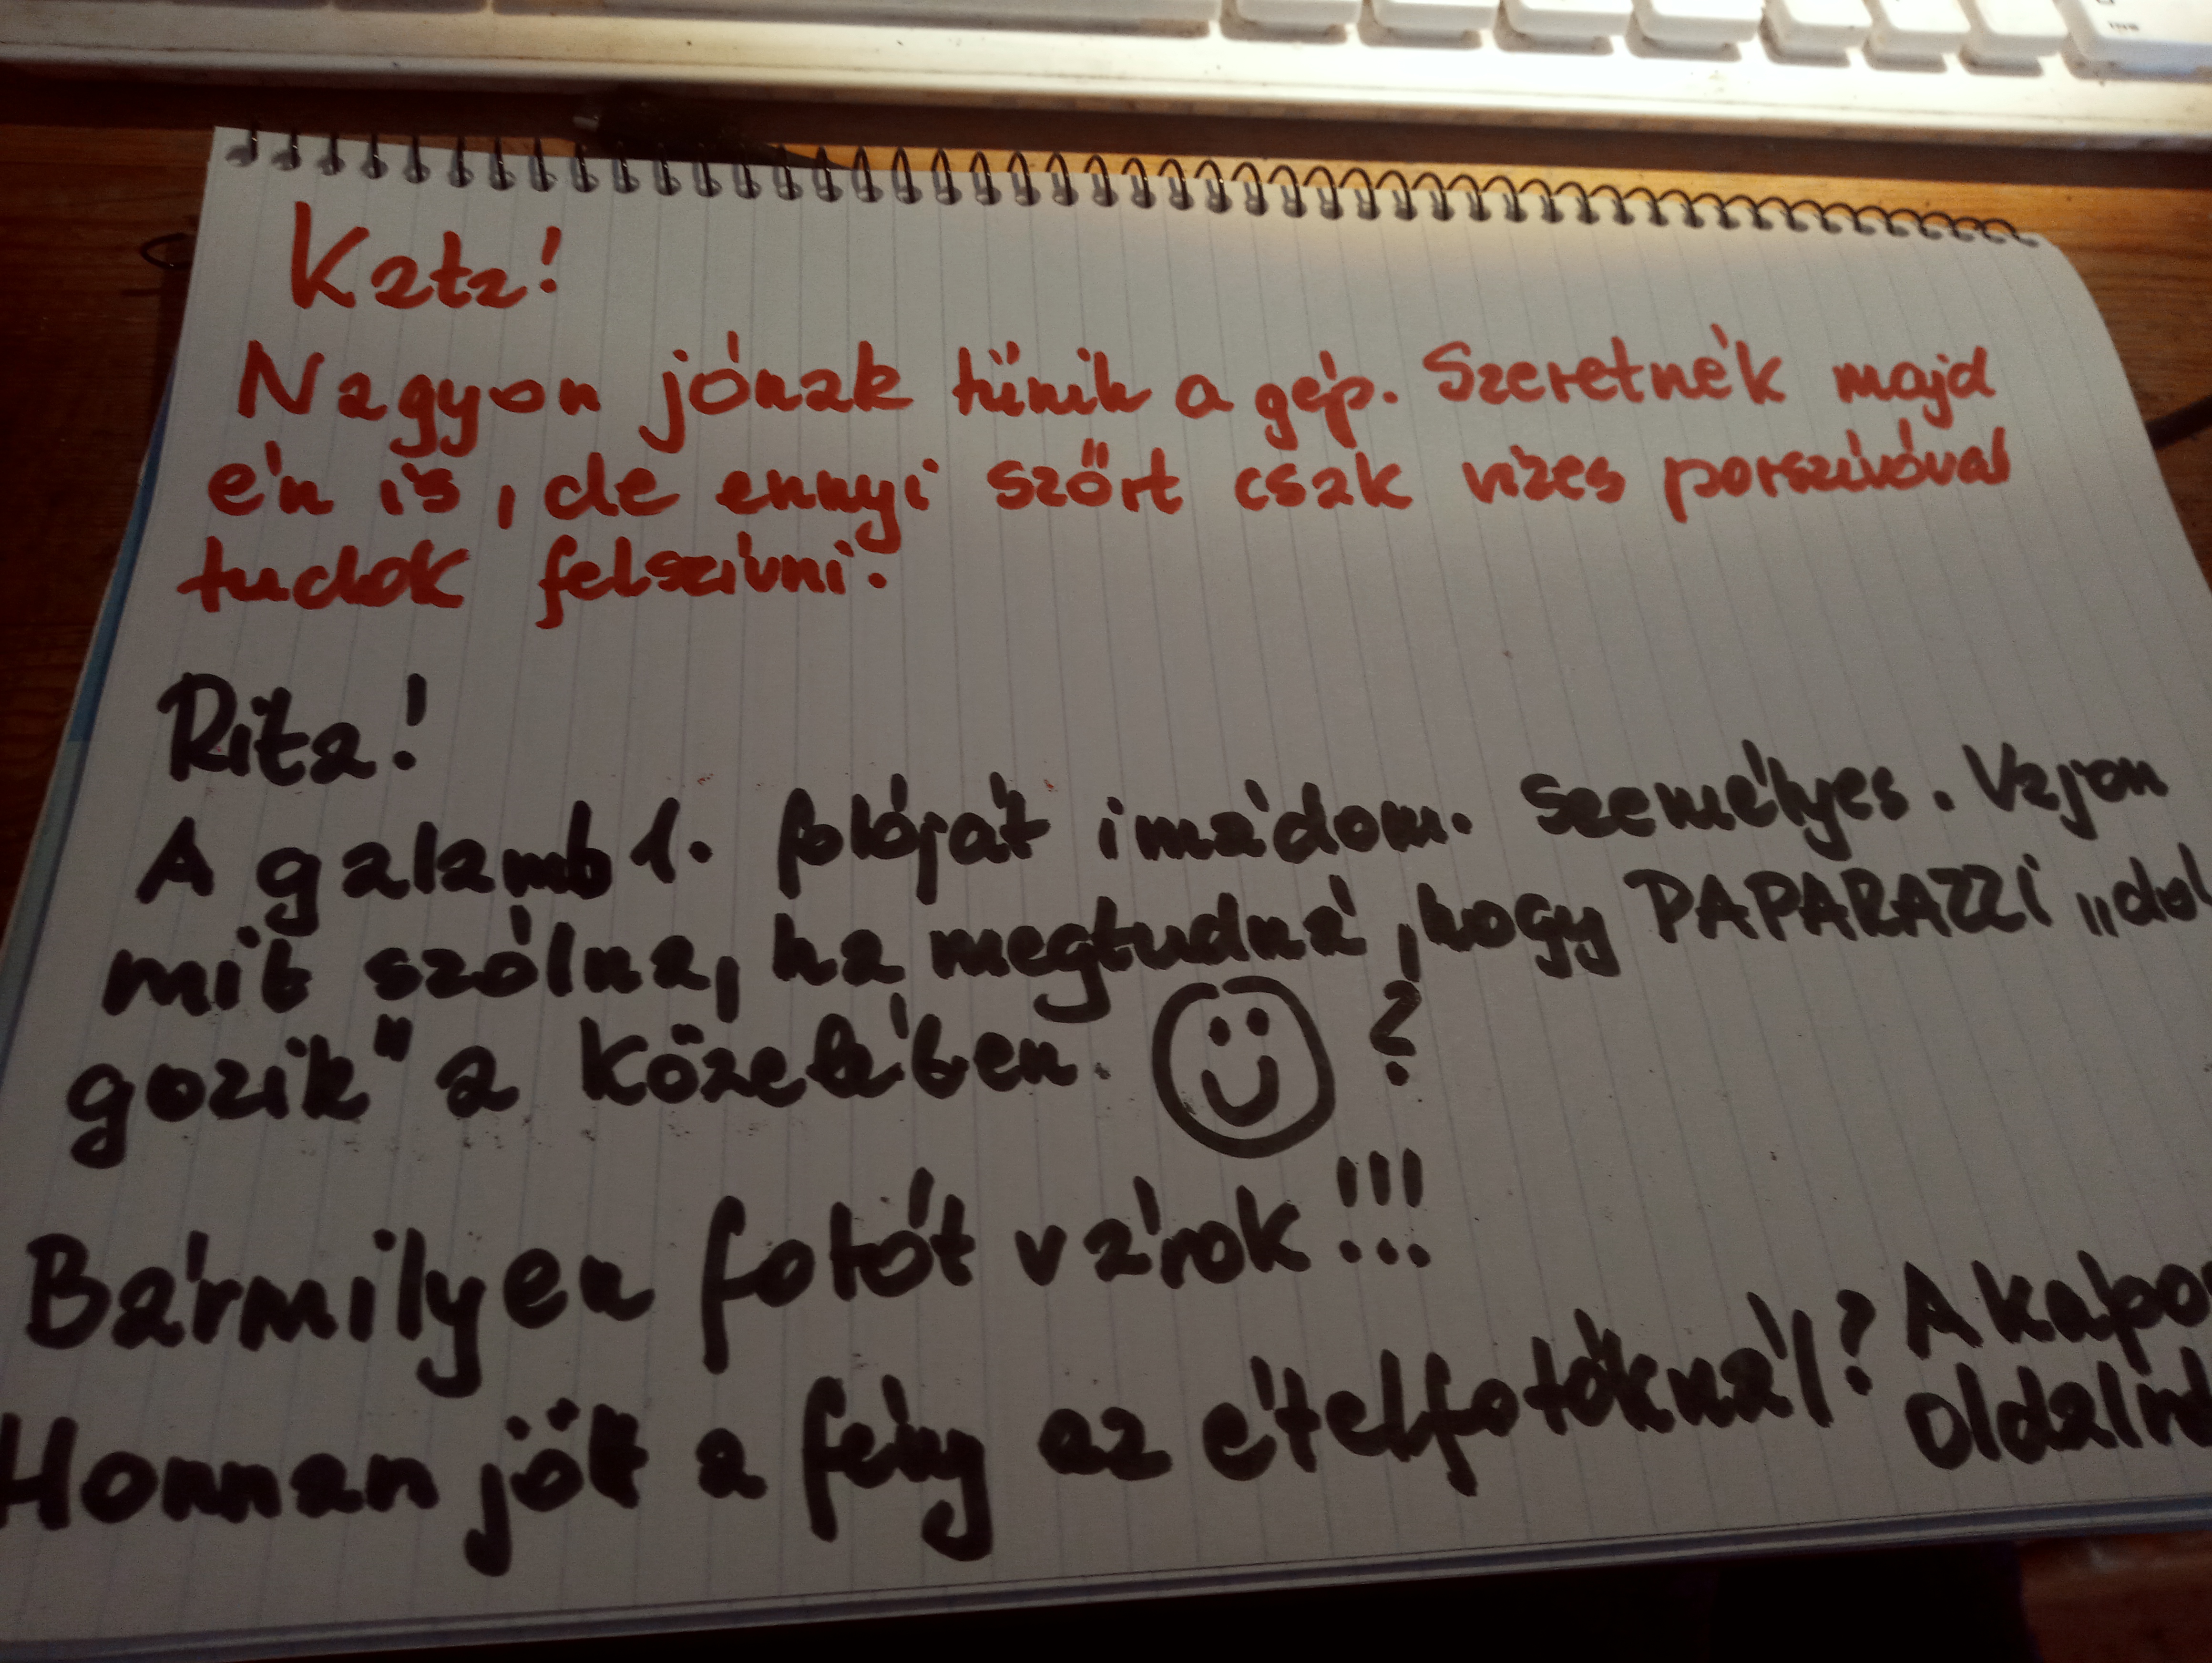 Kata!
Nagyon jónak tűnik a gép. Szeretnék majd
én is, de ennyi szőrt csak vizes porszívóval
tudok felszívni.
Rita!
A galamb 1. fotóját imádom. Személyes. Vajon
mit szólna, ha megtudná, hogy PAPARAZZI „dol
gozik" a közelében. ?
Bármilyen fotót várok!!!
Honnan jött a fény az ételfotóknál? A kapo
oldalird
INS